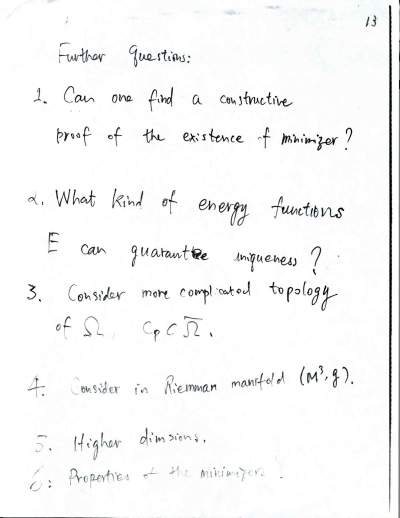 13
Further Questions:
1. Can one find a constructive
proof of the existence of minimizer?
2. What kind of energy functions
E can guarantee uniqueness?
3. Consider more complicated topology
of Ω, Cp ⊂ Ω̅.
4. Consider in Riemman manifold (M³, g).
5. Higher dimsions.
6: Properties of the minimizers?